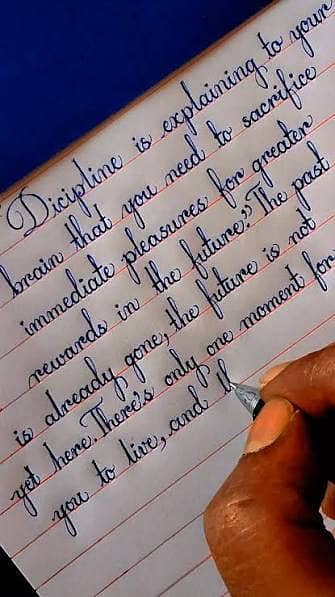 Dicipline is explaining to your
brain that you need to sacrifice
immediate pleasures for greater
rewards in the future." The past
is already gone, the future is not
yet here. There's only one moment for
you to live, and